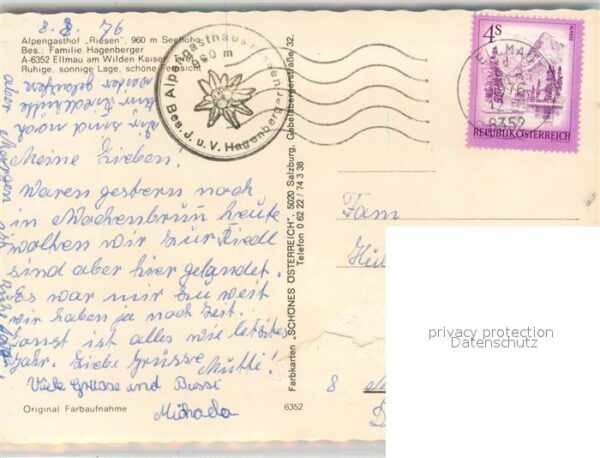 8. 8. 76
Alpengasthof „Riesen", 960 m Seehöhe
Bes.: Familie Hagenberger
A-6352 Ellmau am Wilden Kaiser
Ruhige, sonnige Lage, schöne Fernsicht
Alpengasthaus Riesen
960 m
Bes. J. u. V. Hagenberger
4S
REPUBLIK ÖSTERREICH
ELLMAU
6352
Meine Lieben!
Waren gestern noch
in Wochenbrun heute
wollten wir zur Riedl
sind aber hier gelandet.
Es war mir zu weit
wir haben ja noch Zeit.
Sonst ist alles wie letztes
Jahr. Liebe Grüsse Mutti!
Viele Grüsse und Bussi
Michaela
wir sind noch
zur Riedlhütte
weiter gelaufen
aber Morgen
Fam
Original Farbaufnahme
6352
Farbkarten „SCHÖNES ÖSTERREICH", 5020 Salzburg, Gabelsbergerstraße 32,
Telefon 0 62 22 / 74 3 38
8
privacy protection
Datenschutz